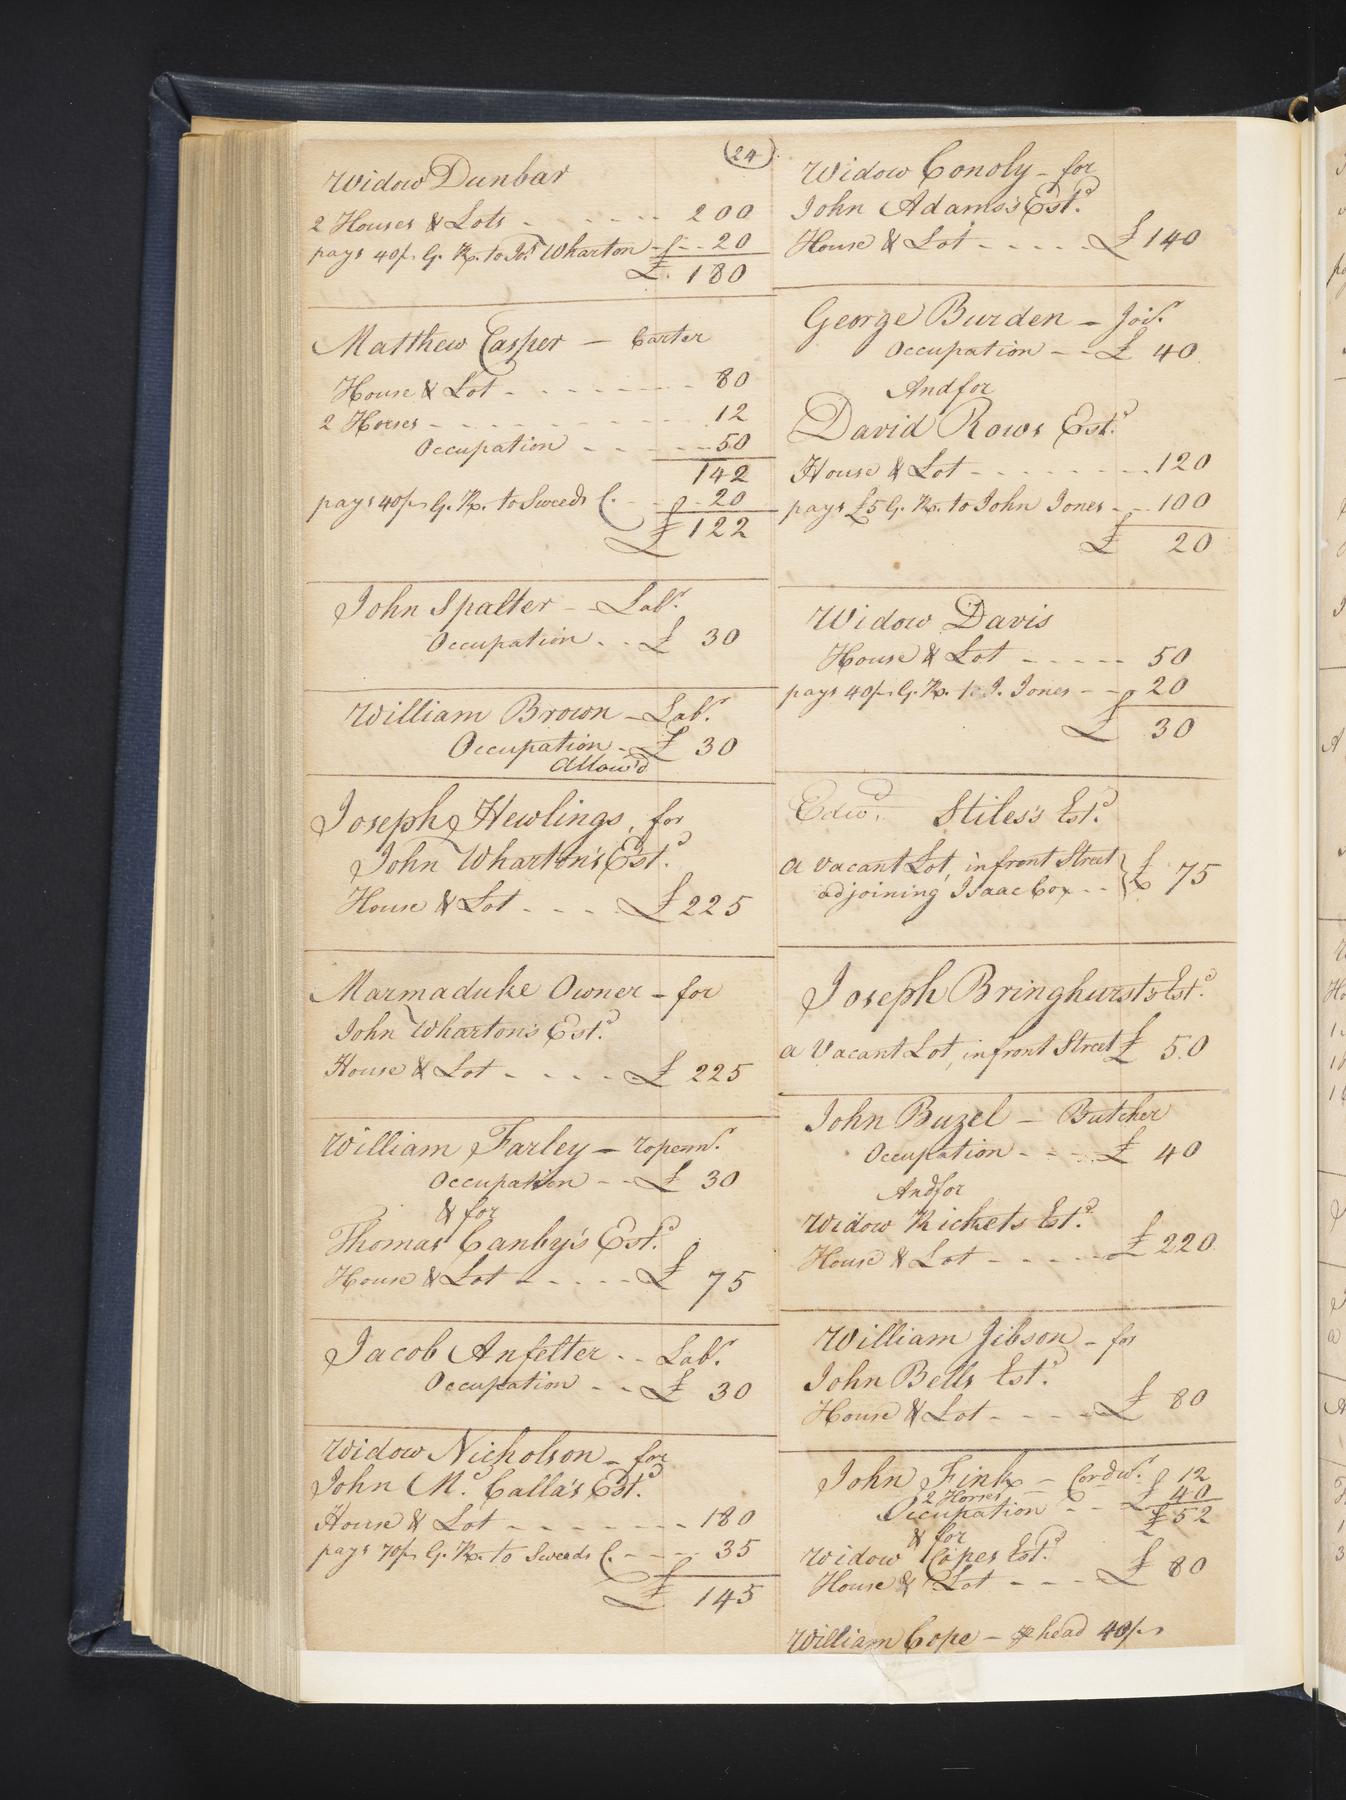 24
Widow Dunbar
2 Houses & Lots - - - - - - 200
pays 40/s G. R. to Jos. Wharton - £ - - 20
£ 180
Matthew Casper — Carter
House & Lot - - - - - - - 80
2 Horses - - - - - - - - 12
Occupation - - - - - 50
142
pays 40/s G. R. to Sweeds C. - - - 20
£ 122
John Spalter - - Labr.
Occupation - - £ 30
William Brown - Labr.
Occupation - £ 30
Allow'd
Joseph Hewlings, for
John Wharton's Estd.
House & Lot - - - - £ 225
Marmaduke Owner - for
John Wharton's Estd.
House & Lot - - - - - £ 225
William Farley - ropemr.
Occupation - - £ 30
& for
Thomas Canby's Estd.
House & Lot - - - - - £ 75
Jacob Anfelter - - Labr.
Occupation - - £ 30
Widow Nicholson - for
John Mc. Calla's Estd.
House & Lot - - - - - - - - 180
pays 70/s G. R. to Sweeds C. - - - - 35
£ 145
Widow Conoly - for
John Adams's Estd.
House & Lot - - - - - £ 140
George Burden - Joir.
Occupation - - £ 40
And for
David Rows Estd.
House & Lot - - - - - - - - 120
pays £5 G. R. to John Jones - - - 100
£ 20
Widow Davis
House & Lot - - - - - 50
pays 40/s G. R. to J. Jones - - 20
£ 30
Edwd. Stiles's Estd.
a vacant Lot, in front Street } £ 75
adjoining Isaac Cox - -
Joseph Bringhurst's Estd.
a Vacant Lot, in front Street £ 50
John Buzel - Butcher
Occupation - - - - £ 40
And for
Widow Rickets Estd.
House & Lot - - - - - £ 220
William Jibson - for
John Bells Estd.
House & Lot - - - - £ 80
John Fink - Cordwr.
2 Horses £ 12
Occupation - - £ 40
£ 52
& for
Widow Copes Estd.
House & Lot - - - - £ 80
William Cope - ⅌ head 40/s